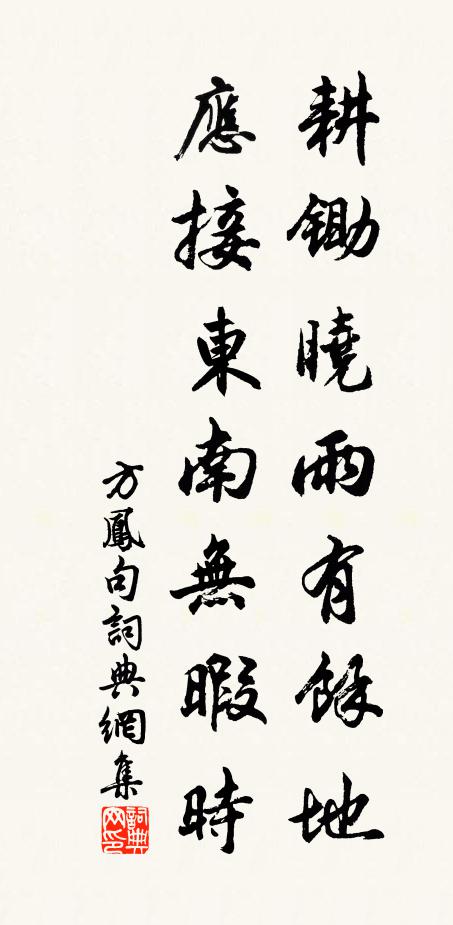 耕鋤曉雨有餘地
應接東南無暇時
方鳳句詞典網集
詞典网印